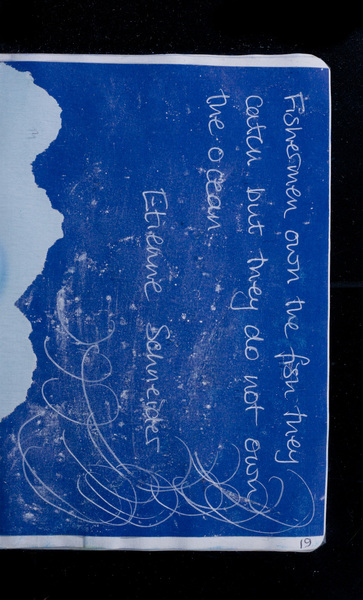 Fishermen own the fish they
catch but they do not own
the ocean.
Etienne Schneider
19